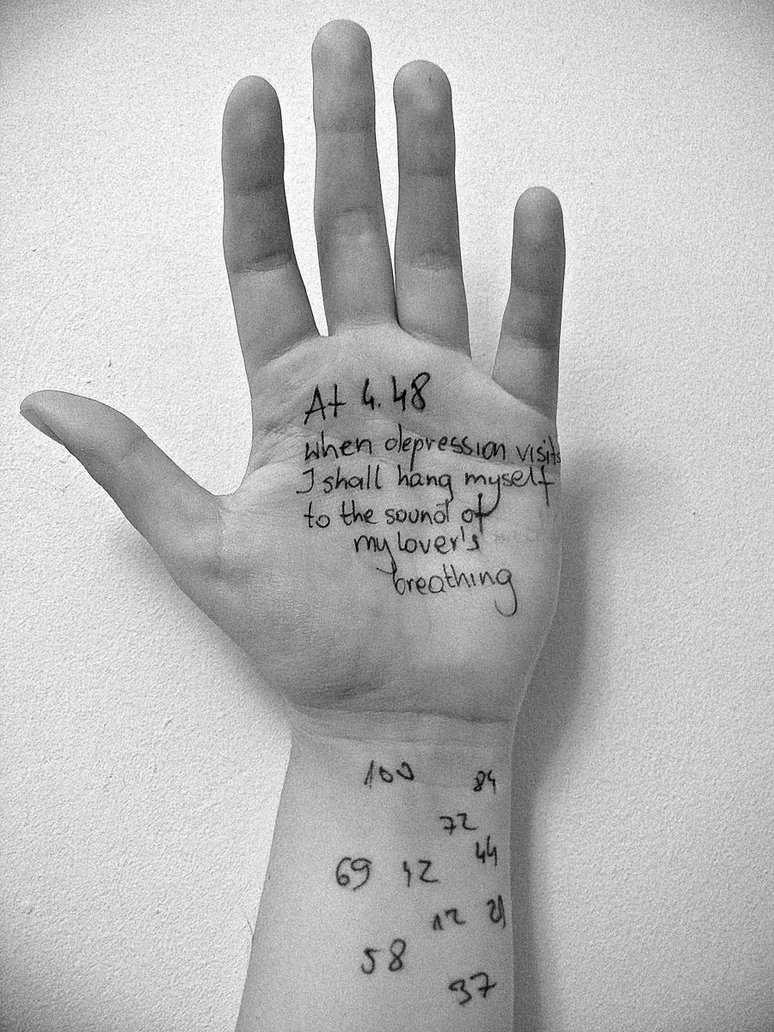 At 4.48
when depression visits
I shall hang myself
to the sound of
my lover's
breathing
100 84
72
44
69 42
12 21
58
37